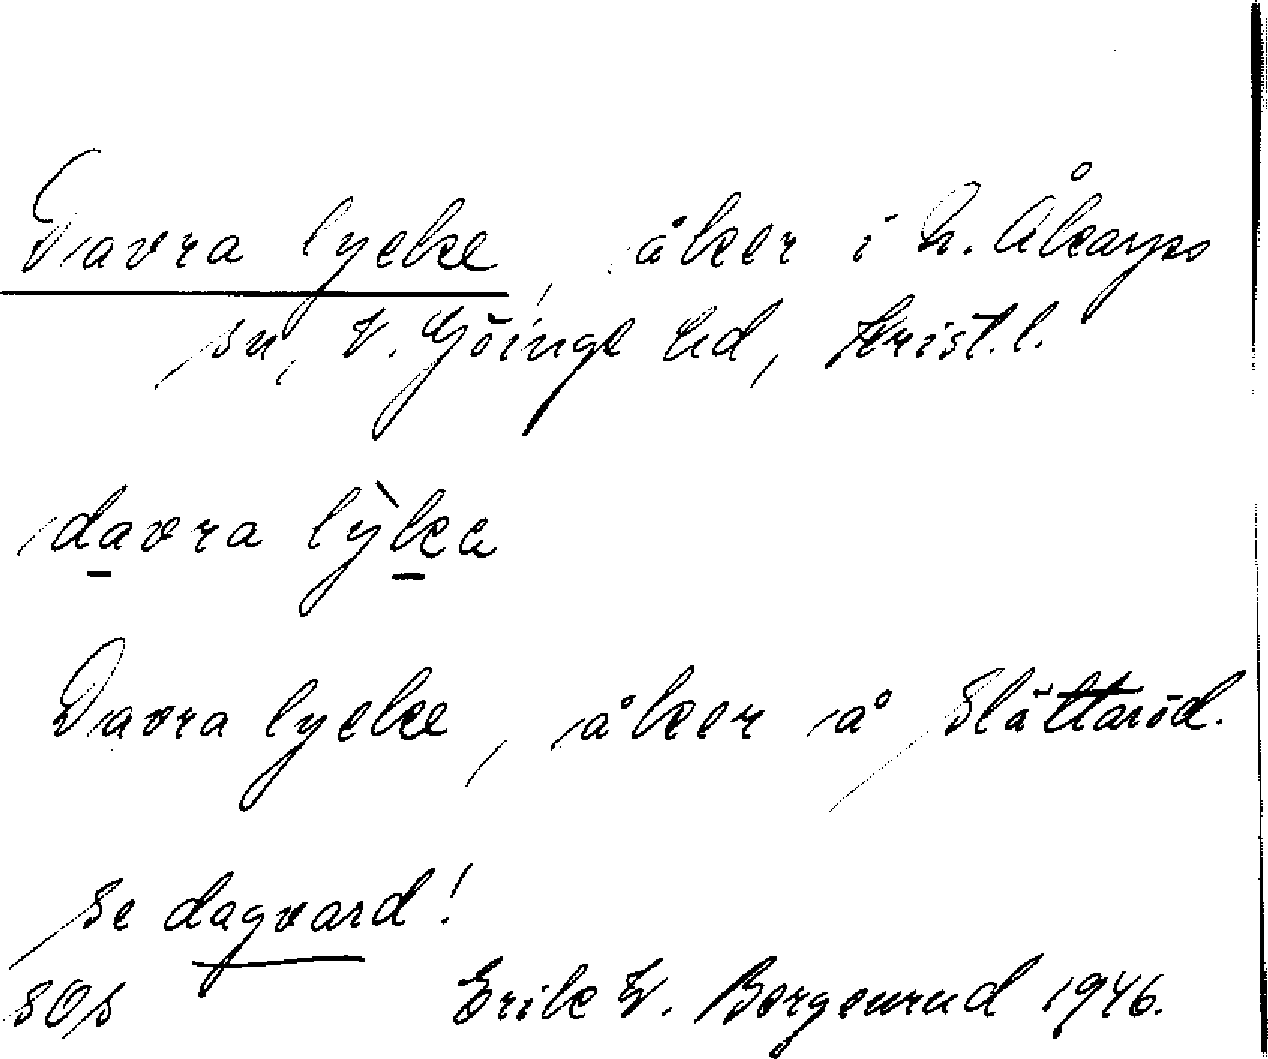 Davra lycke, åker i N. Åkarps
sn, V. Göinge hd, Krist. l.
davra lỳka
Davra lycke, åker å Slättaröd.
Se dagvard!
SOS Erik W. Bergenrud 1946.